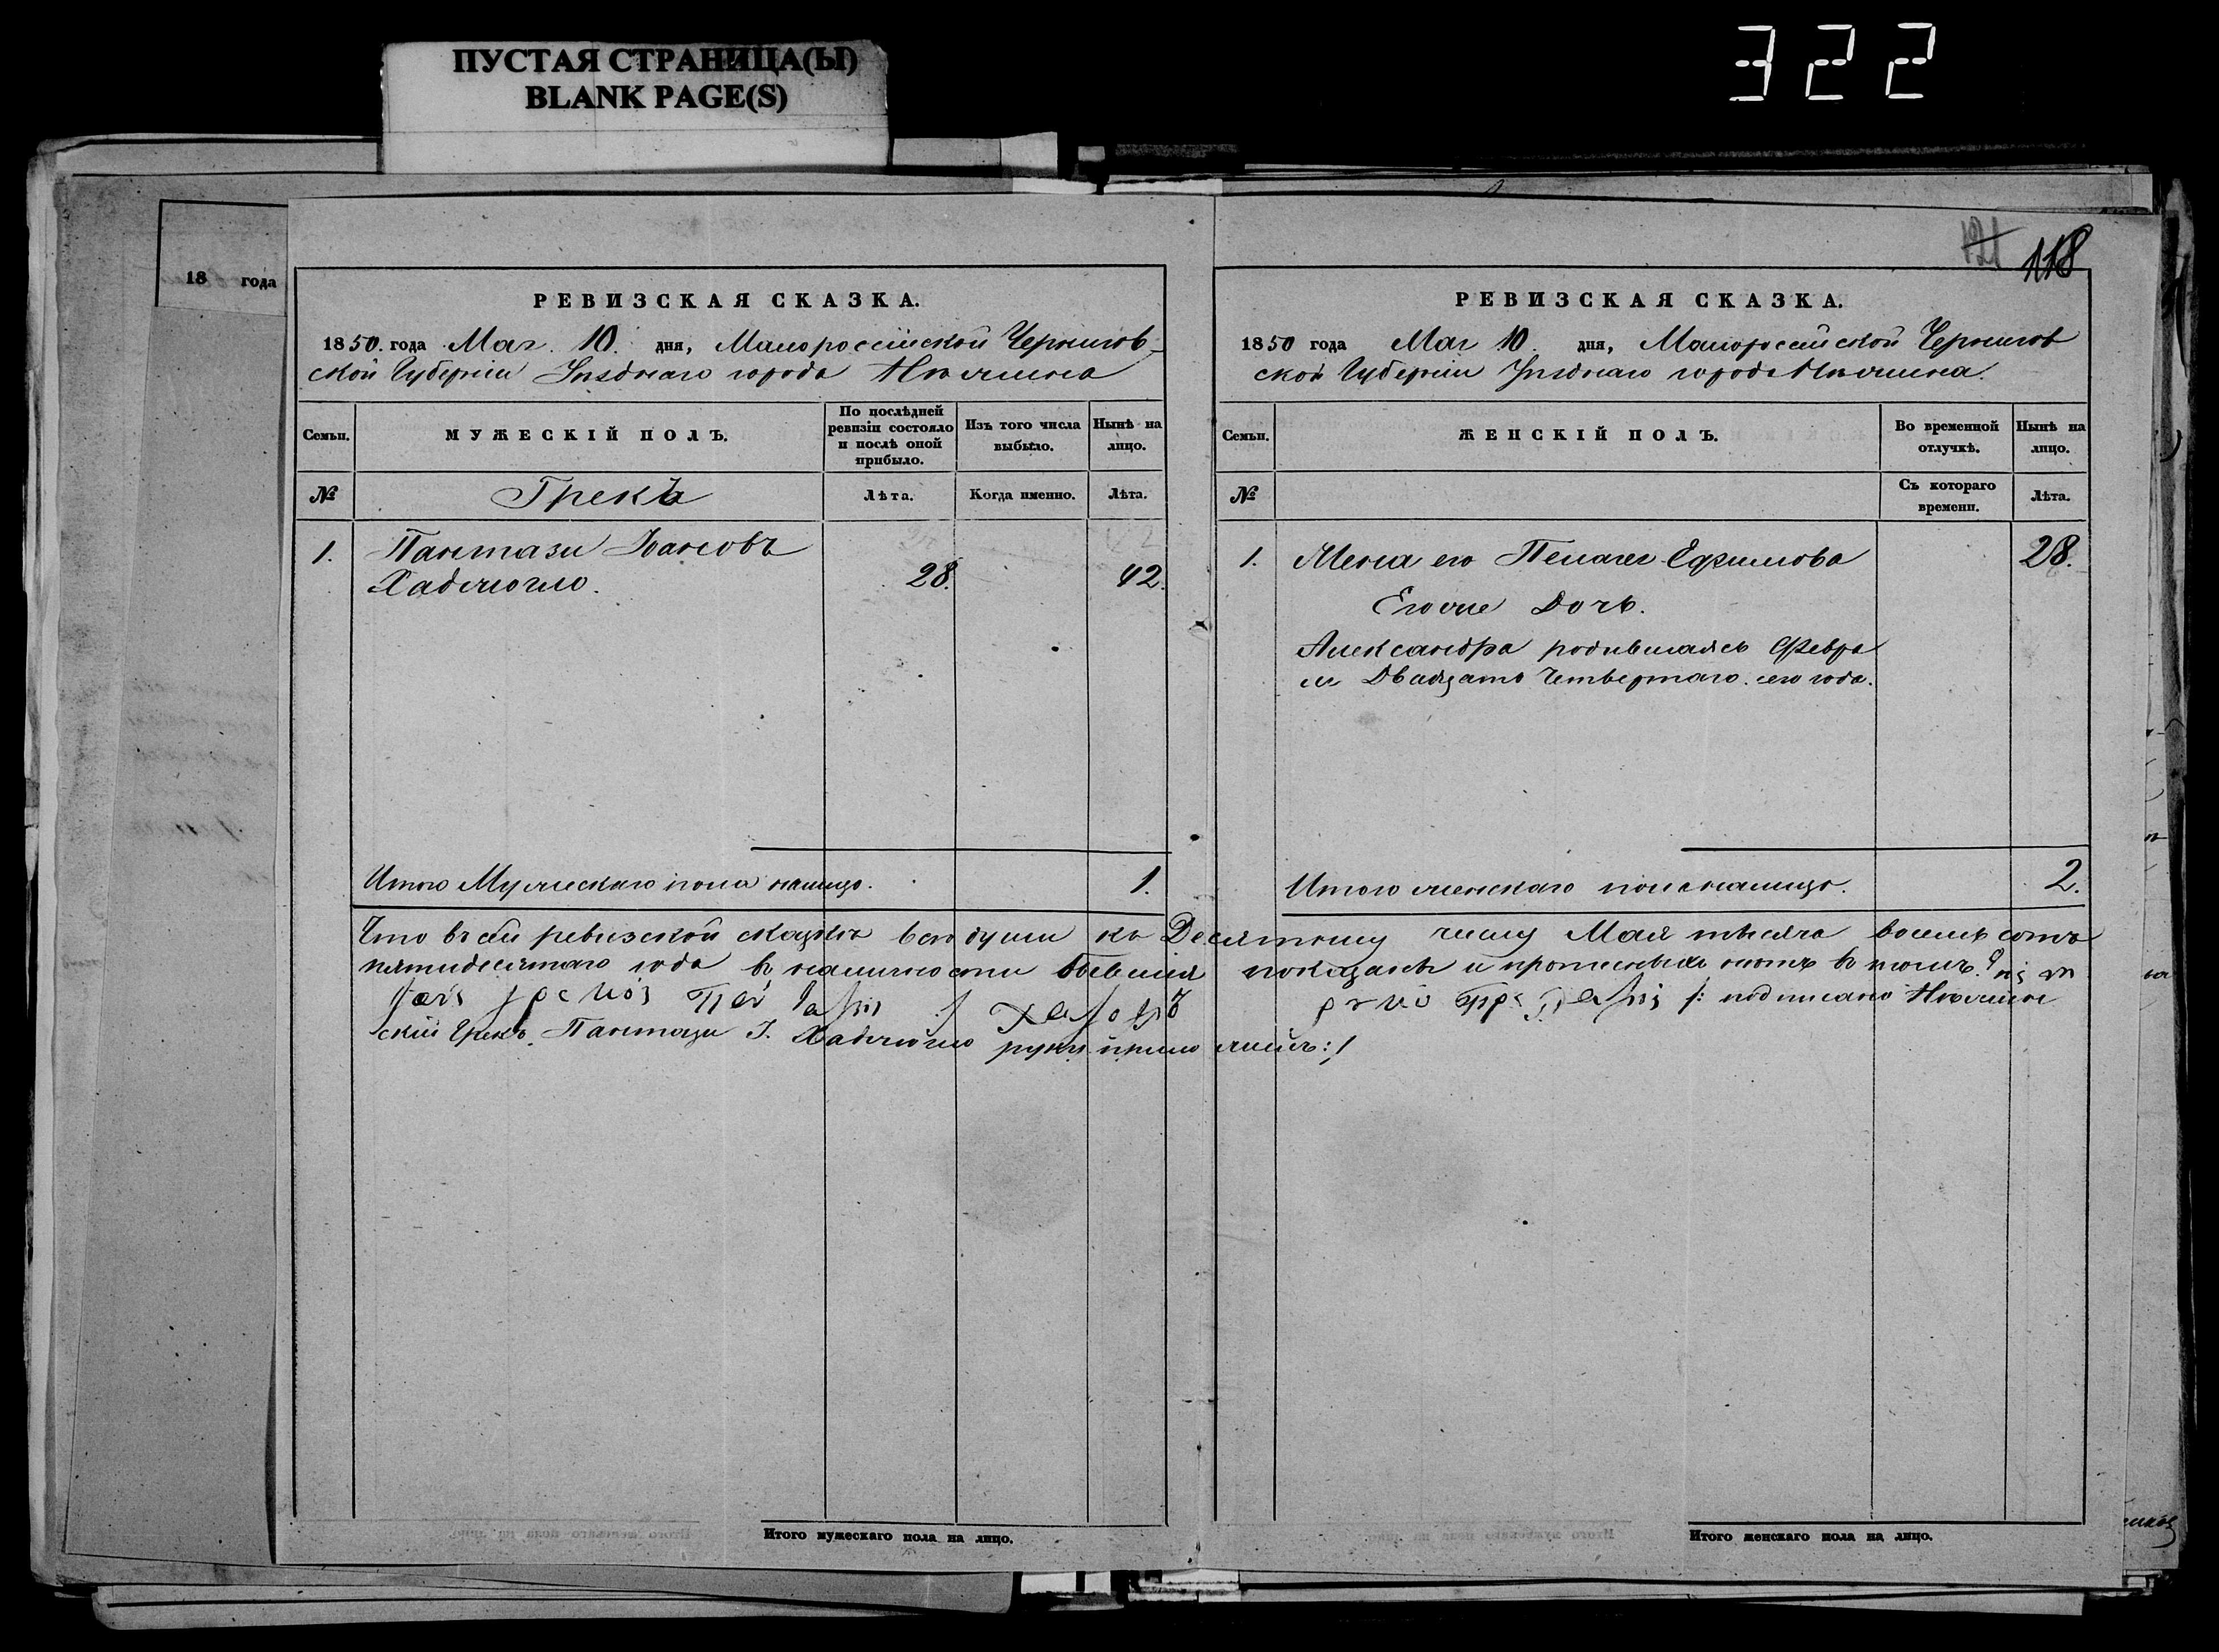 ПУСТАЯ СТРАНИЦА(Ы)
BLANK PAGE(S)
322
18 года
РЕВИЗСКАЯ СКАЗКА.
1850. года Мая 10. дня, Малороссійской Чернигов-
ской Губерніи Уѣзднаго города Нѣжина
Семьи.
МУЖЕСКІЙ ПОЛЪ.
По послѣдней ревизіи состояло и послѣ оной прибыло.
Изъ того числа выбыло.
Нынѣ на лицо.
№
Грекъ
Лѣта.
Когда именно.
Лѣта.
1. Пантази Івановъ
Хаджіогло. 28. 42.
Итого Мужескаго пола налицо. 1.
121 118
РЕВИЗСКАЯ СКАЗКА.
1850 года Мая 10. дня, Малоросейской Чернигов
ской Губерніи Уѣзднаго города Нѣжина.
Семьи.
ЖЕНСКІЙ ПОЛЪ.
Во временной отлучкѣ.
Нынѣ на лицо.
№
Съ котораго времени.
Лѣта.
1. Жена его Пелагея Ефимова 28.
Егоже Дочь.
Александра родившаясь Февра
ля Двадцать Четвертаго сего года.
Итого женскаго пола налицо. 2.
Что въ сей ревизской сказкѣ всѣ души къ Десятому числу Мая тысяча восемь сотъ
пятидесятаго года въ наличности бывшія показаны и прописныхъ нѣтъ въ томъ.
/: подписано Нѣжин
скій Грекъ Пантази І. Хаджіогло руку приложилъ :/
Итого мужескаго пола на лицо.
Итого женскаго пола на лицо.